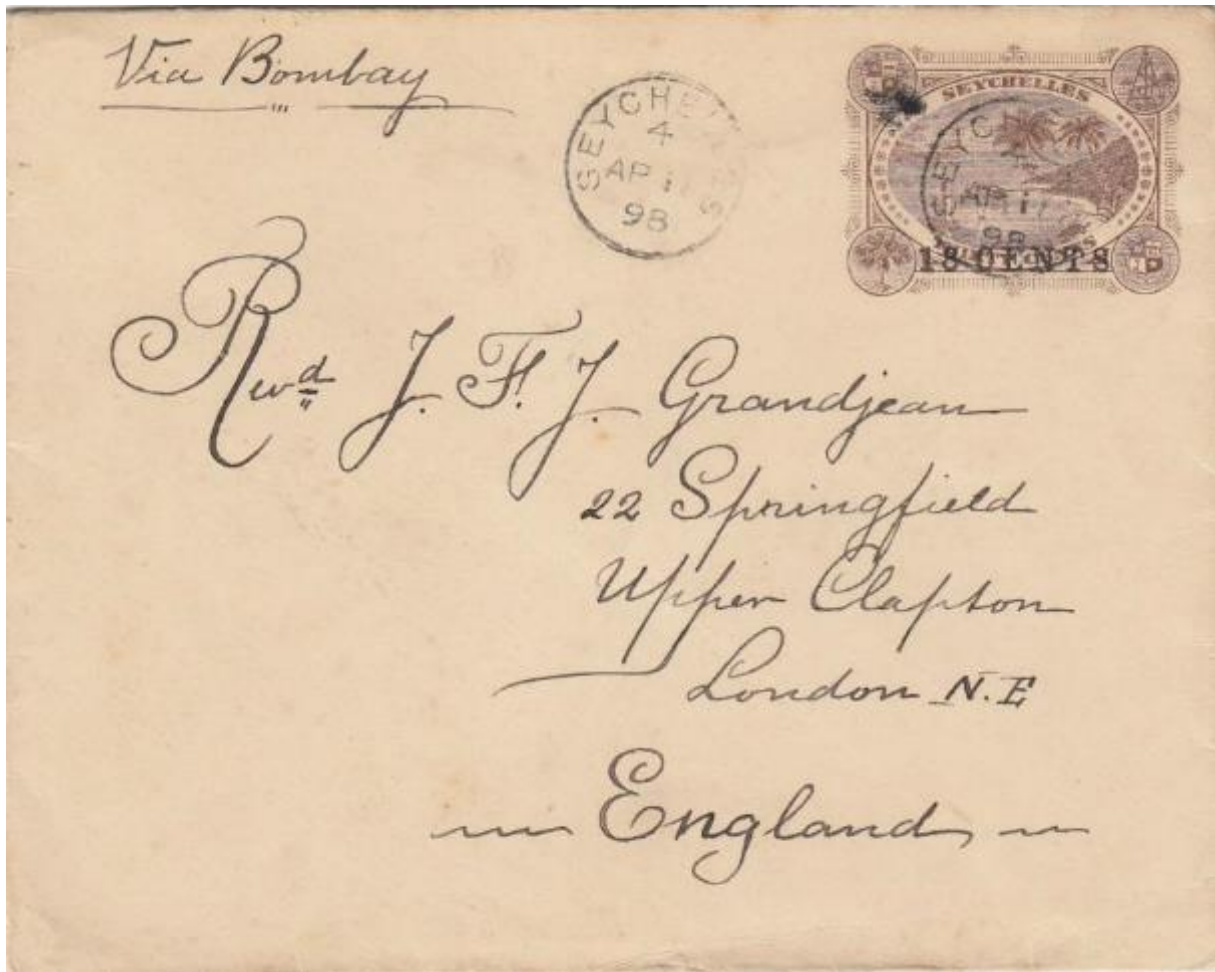 Via Bombay
SEYCHELLES
4
AP 11
98
SEYCHELLES
18 CENTS
Revd J. F. J. Grandjean
22 Springfield
Upper Clapton
London N.E
England